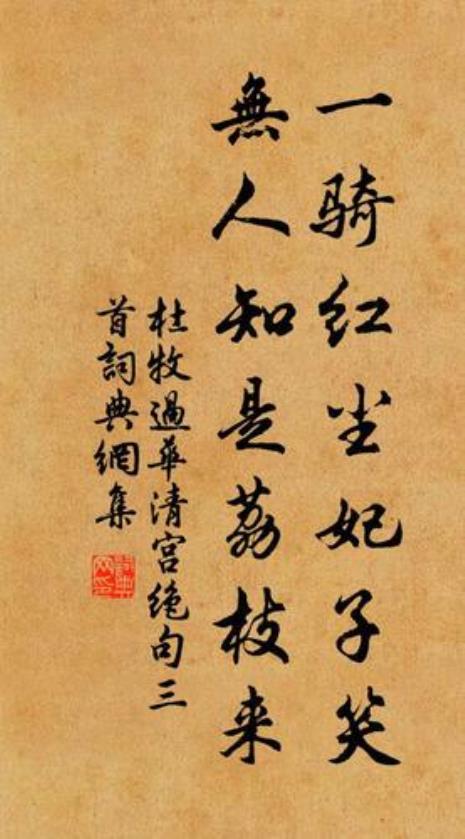 一骑红尘妃子笑
無人知是荔枝来
杜牧過華清宫絶句三
首詞典網集